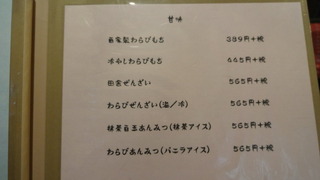 甘味
自家製わらびもち 389円+税
冷やしわらびもち 445円+税
田舎ぜんざい 565円+税
わらびぜんざい(温/冷) 565円+税
抹茶白玉あんみつ(抹茶アイス) 565円+税
わらびあんみつ(バニラアイス) 565円+税